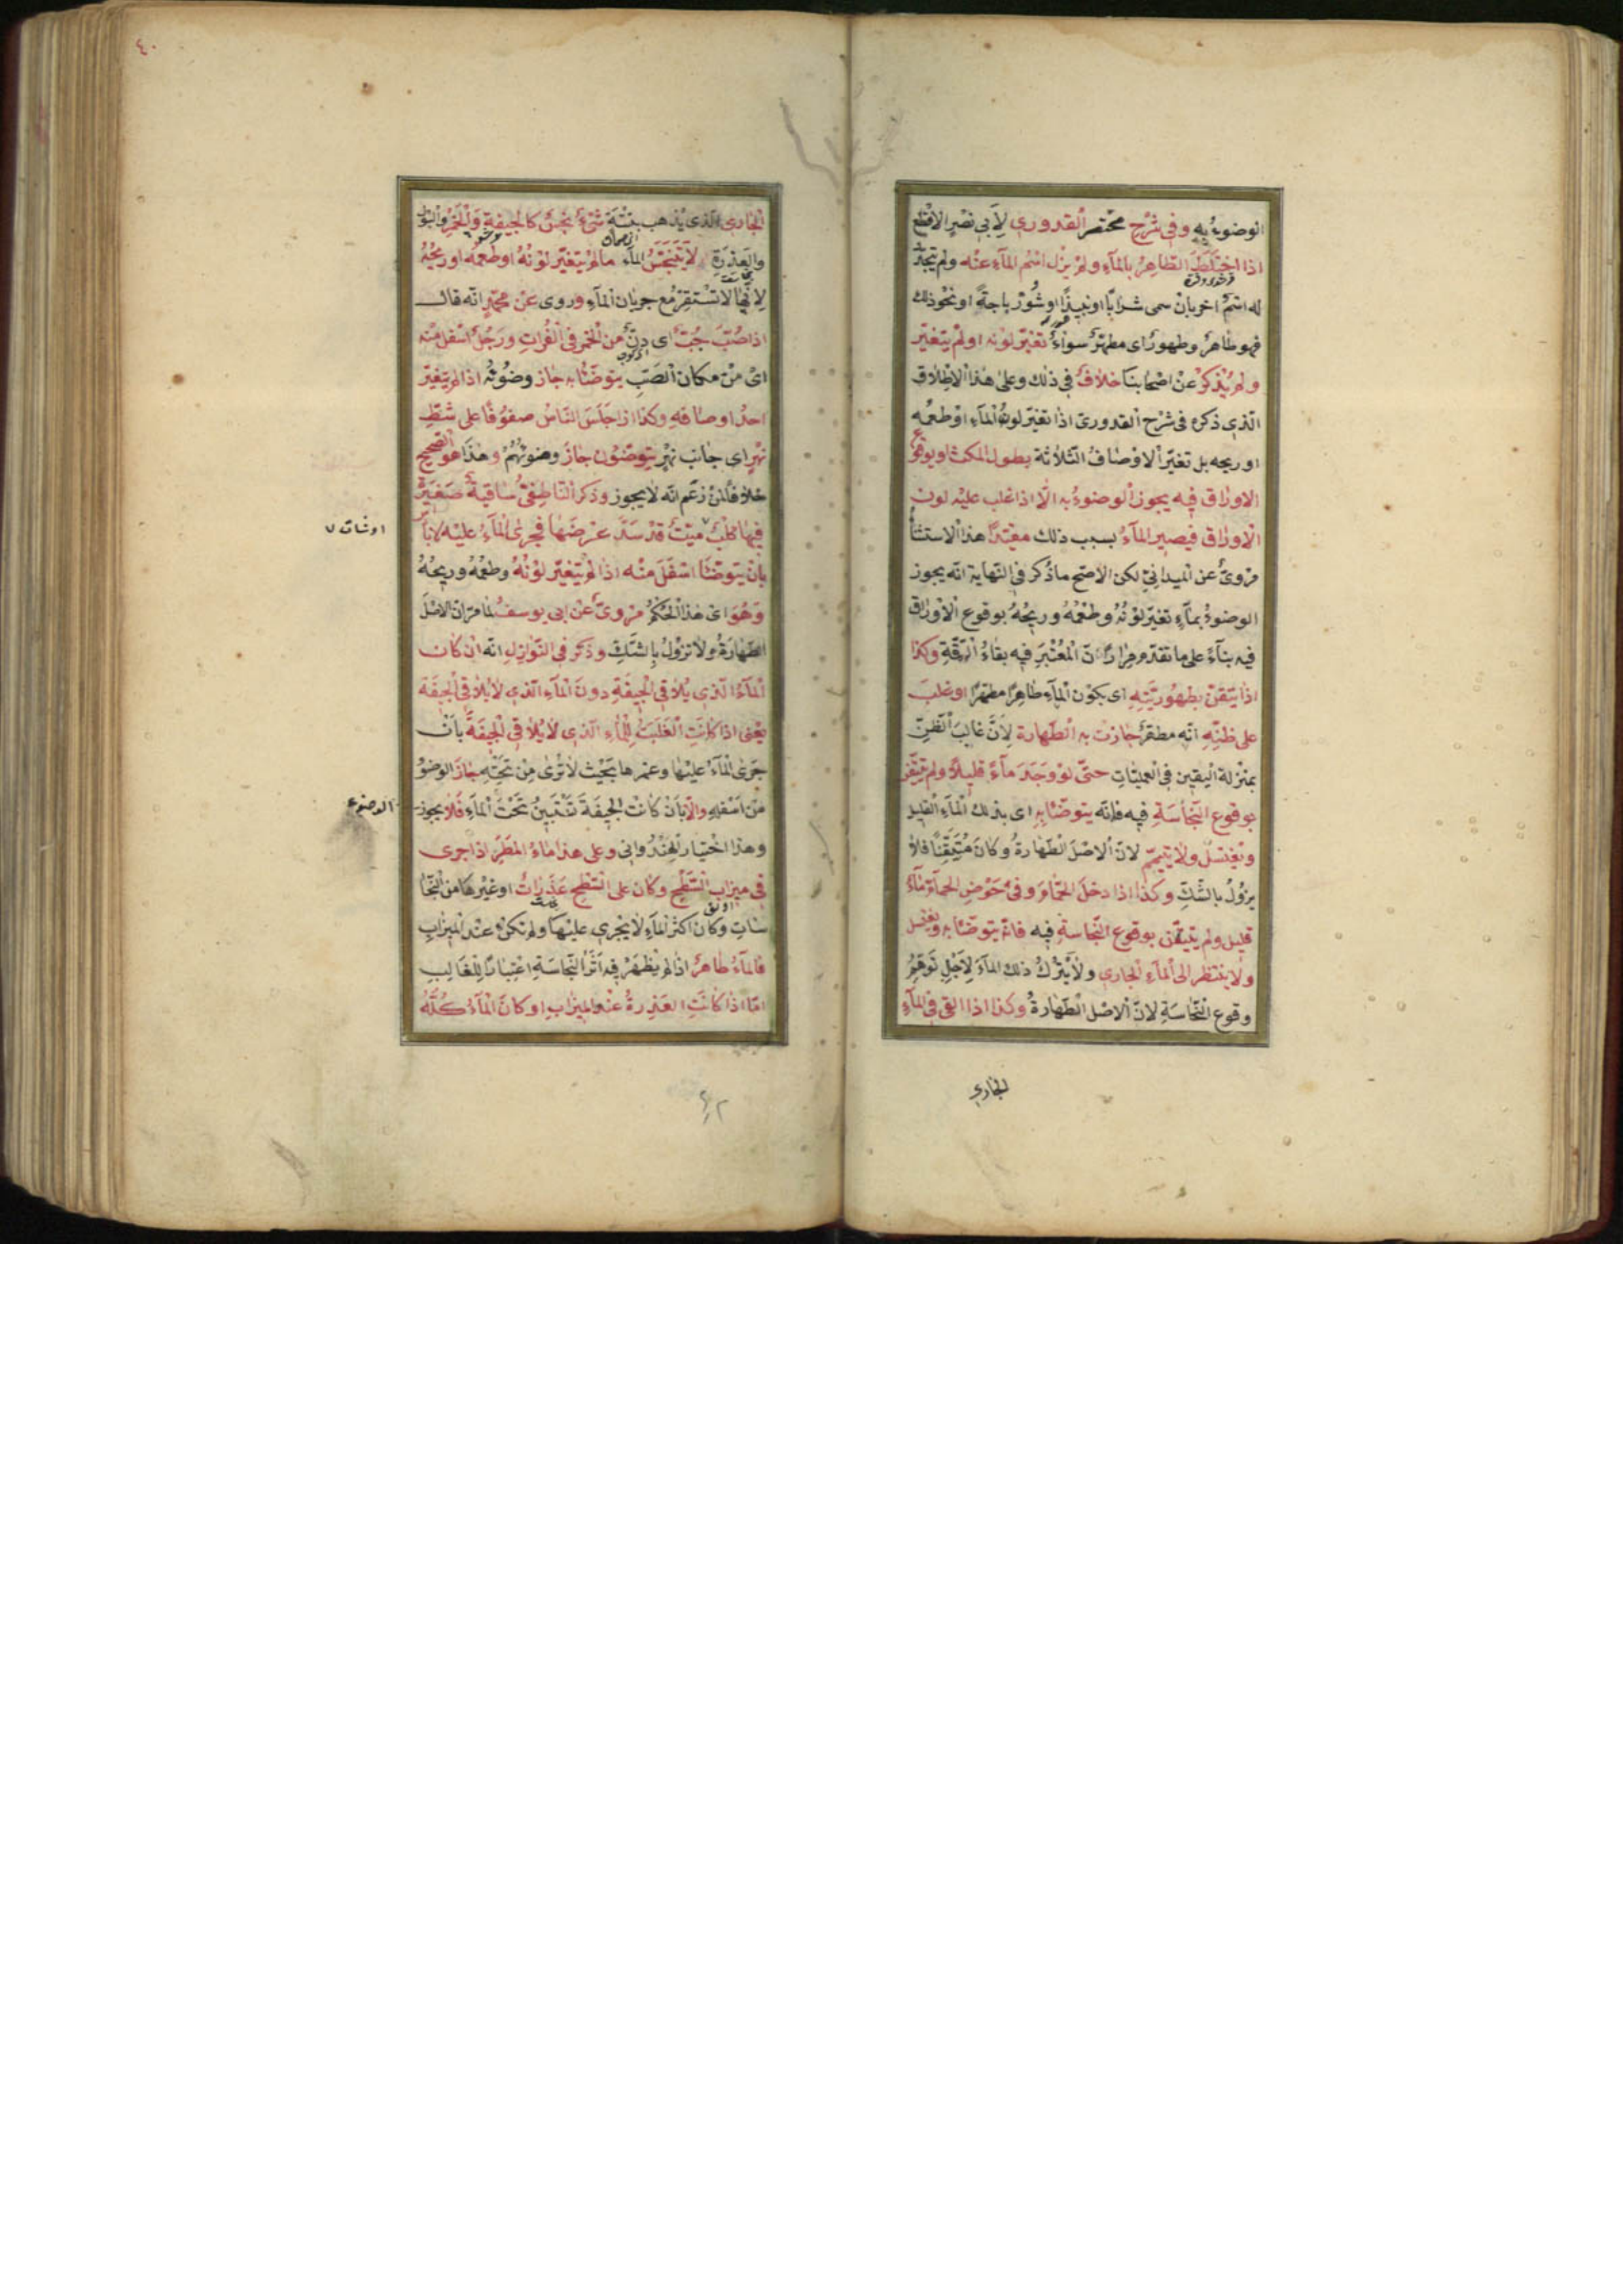 الوضوءُ به وفى شرح مختصر القدورى لأبى نصر الاقطع
اذا اختلط الطاهر بالمآء ولم يزل اسم المآء عنه ولم يتجدّد
له اسم اخر بان سمى شرابًا او نبيذًا او شورباجةً او نحو ذلك
فهو طاهرٌ وطهورٌ اى مطهّرٌ سواءٌ تغيّر لونه او لم يتغيّر
ولم يُذكر عن اصحابنا خلافٌ فى ذلك وعلى هذا الاطلاق
الّذى ذكره فى شرح القدورى اذا تغيّر لون المآء او طعمه
او ريحه بل تغيّر الاوصاف الثّلاثة بطول المكث او بوقوع
الاوراق فيه يجوز الوضوءُ به الّا اذا غلب عليه لون
الاوراق فيصير المآءُ بسبب ذلك مقيّدًا هذا الاستثنأ
مروىٌّ عن الميدانىّ لكن الاصحّ ما ذُكر فى النّهاية انّه يجوز
الوضوءُ بمآءٍ تغيّر لونُهُ وطعمُهُ وريحُهُ بوقوع الاوراق
فيه بنآءً على ما تقدّم مرارًا انّ المعتبر فيه بقاءُ الرّقّة وكذا
اذا تيقّن بطهوريّته اى بكون المآء طاهرًا مطهّرًا او غلب
على ظنّه انّه مطهّرٌ جازت به الطّهارة لأنّ غالب الظنّ
بمنزلة اليقين فى العمليّات حتّى لو وجد مآءً قليلًا ولم يتيقّن
بوقوع النّجاسة فيه فانّه يتوضّأ به اى بذلك المآء القليل
ويغتسل ولا يتيمّم لانّ الاصل الطّهارةُ وكان متيقّنًا فلا
يزول بالشّكّ وكذا اذا دخل الحمّام وفى حوض الحمّام مآءٌ
قليل ولم يتيقّن بوقوع النّجاسة فيه فانّه يتوضّأ به ويغتسل
ولا ينتظر الى المآء الجارى ولا يترك ذلك المآء لأجل توهّم
وقوع النّجاسة لانّ الاصل الطّهارةُ وكذا اذا القى فى المآء
الجارى
٤٠
الجارى الّذى يذهب بتبنة شئٌ نجسٌ كالجيفة والخمر والبول
والعذرة لا يتنجّسُ المآء ما لم يتغيّر لونُهُ او طعمُه او ريحُهُ
لانّها لا تستقرّ مع جريان المآء وروى عن محمّدٍ انّه قال
اذا صُبّ جُبٌّ اى دنٌّ من الخمر فى الفرات ورجلٌ اسفل منه
اى من مكان الصّبّ يتوضّأ به جاز وضوئه اذا لم يتغيّر
احد اوصافه وكذا اذا جلس النّاس صفوفًا على شطّ
نهرٍ اى جانب نهر يتوضّؤن جاز وضوئهم وهذا هو الصّحيح
خلافًا لمن زعم انّه لا يجوز وذكر النّاطفىّ ساقية صغيرة
فيها كلبٌ ميّتٌ قد سدّ عرضها فيجرى المآءُ عليه لا بأس
او شات
بان يتوضّأ اسفل منه اذا لم يتغيّر لونُهُ وطعمُهُ وريحُهُ
وهو اى هذا الحكم مروىٌّ عن ابى يوسف لما مرّ ان الاصل
الطّهارةُ ولا تزول بالشّكّ وذكر فى النّوازل انّه ان كان
المآءُ الّذى يلاقى الجيفة دون المآء الّذى لا يلاقى الجيفة
يعنى اذا كانت الغلبة للمآء الّذى لا يلاقى الجيفة بان
جرى المآءُ عليها وغمرها بحيث لا تُرى من تحته جاز الوضو
من اسفله والّا بان كانت الجيفة تتبيّن تحت المآء فلا يجوز
الوضوء
وهذا اختيار الهندوانى وعلى هذا ماءُ المطر اذا جرى
فى ميزاب السّطح وكان على السّطح عذراتٌ او غيرها من النّجا
سات وكان اكثر المآء لا يجرى عليها ولم تكن عند الميزاب
فالمآءُ طاهرٌ اذا لم يظهر فيه اثر النّجاسة اعتبارًا للغالب
امّا اذا كانت العذرةُ عند الميزاب او كان المآءُ كلّه
٤٢